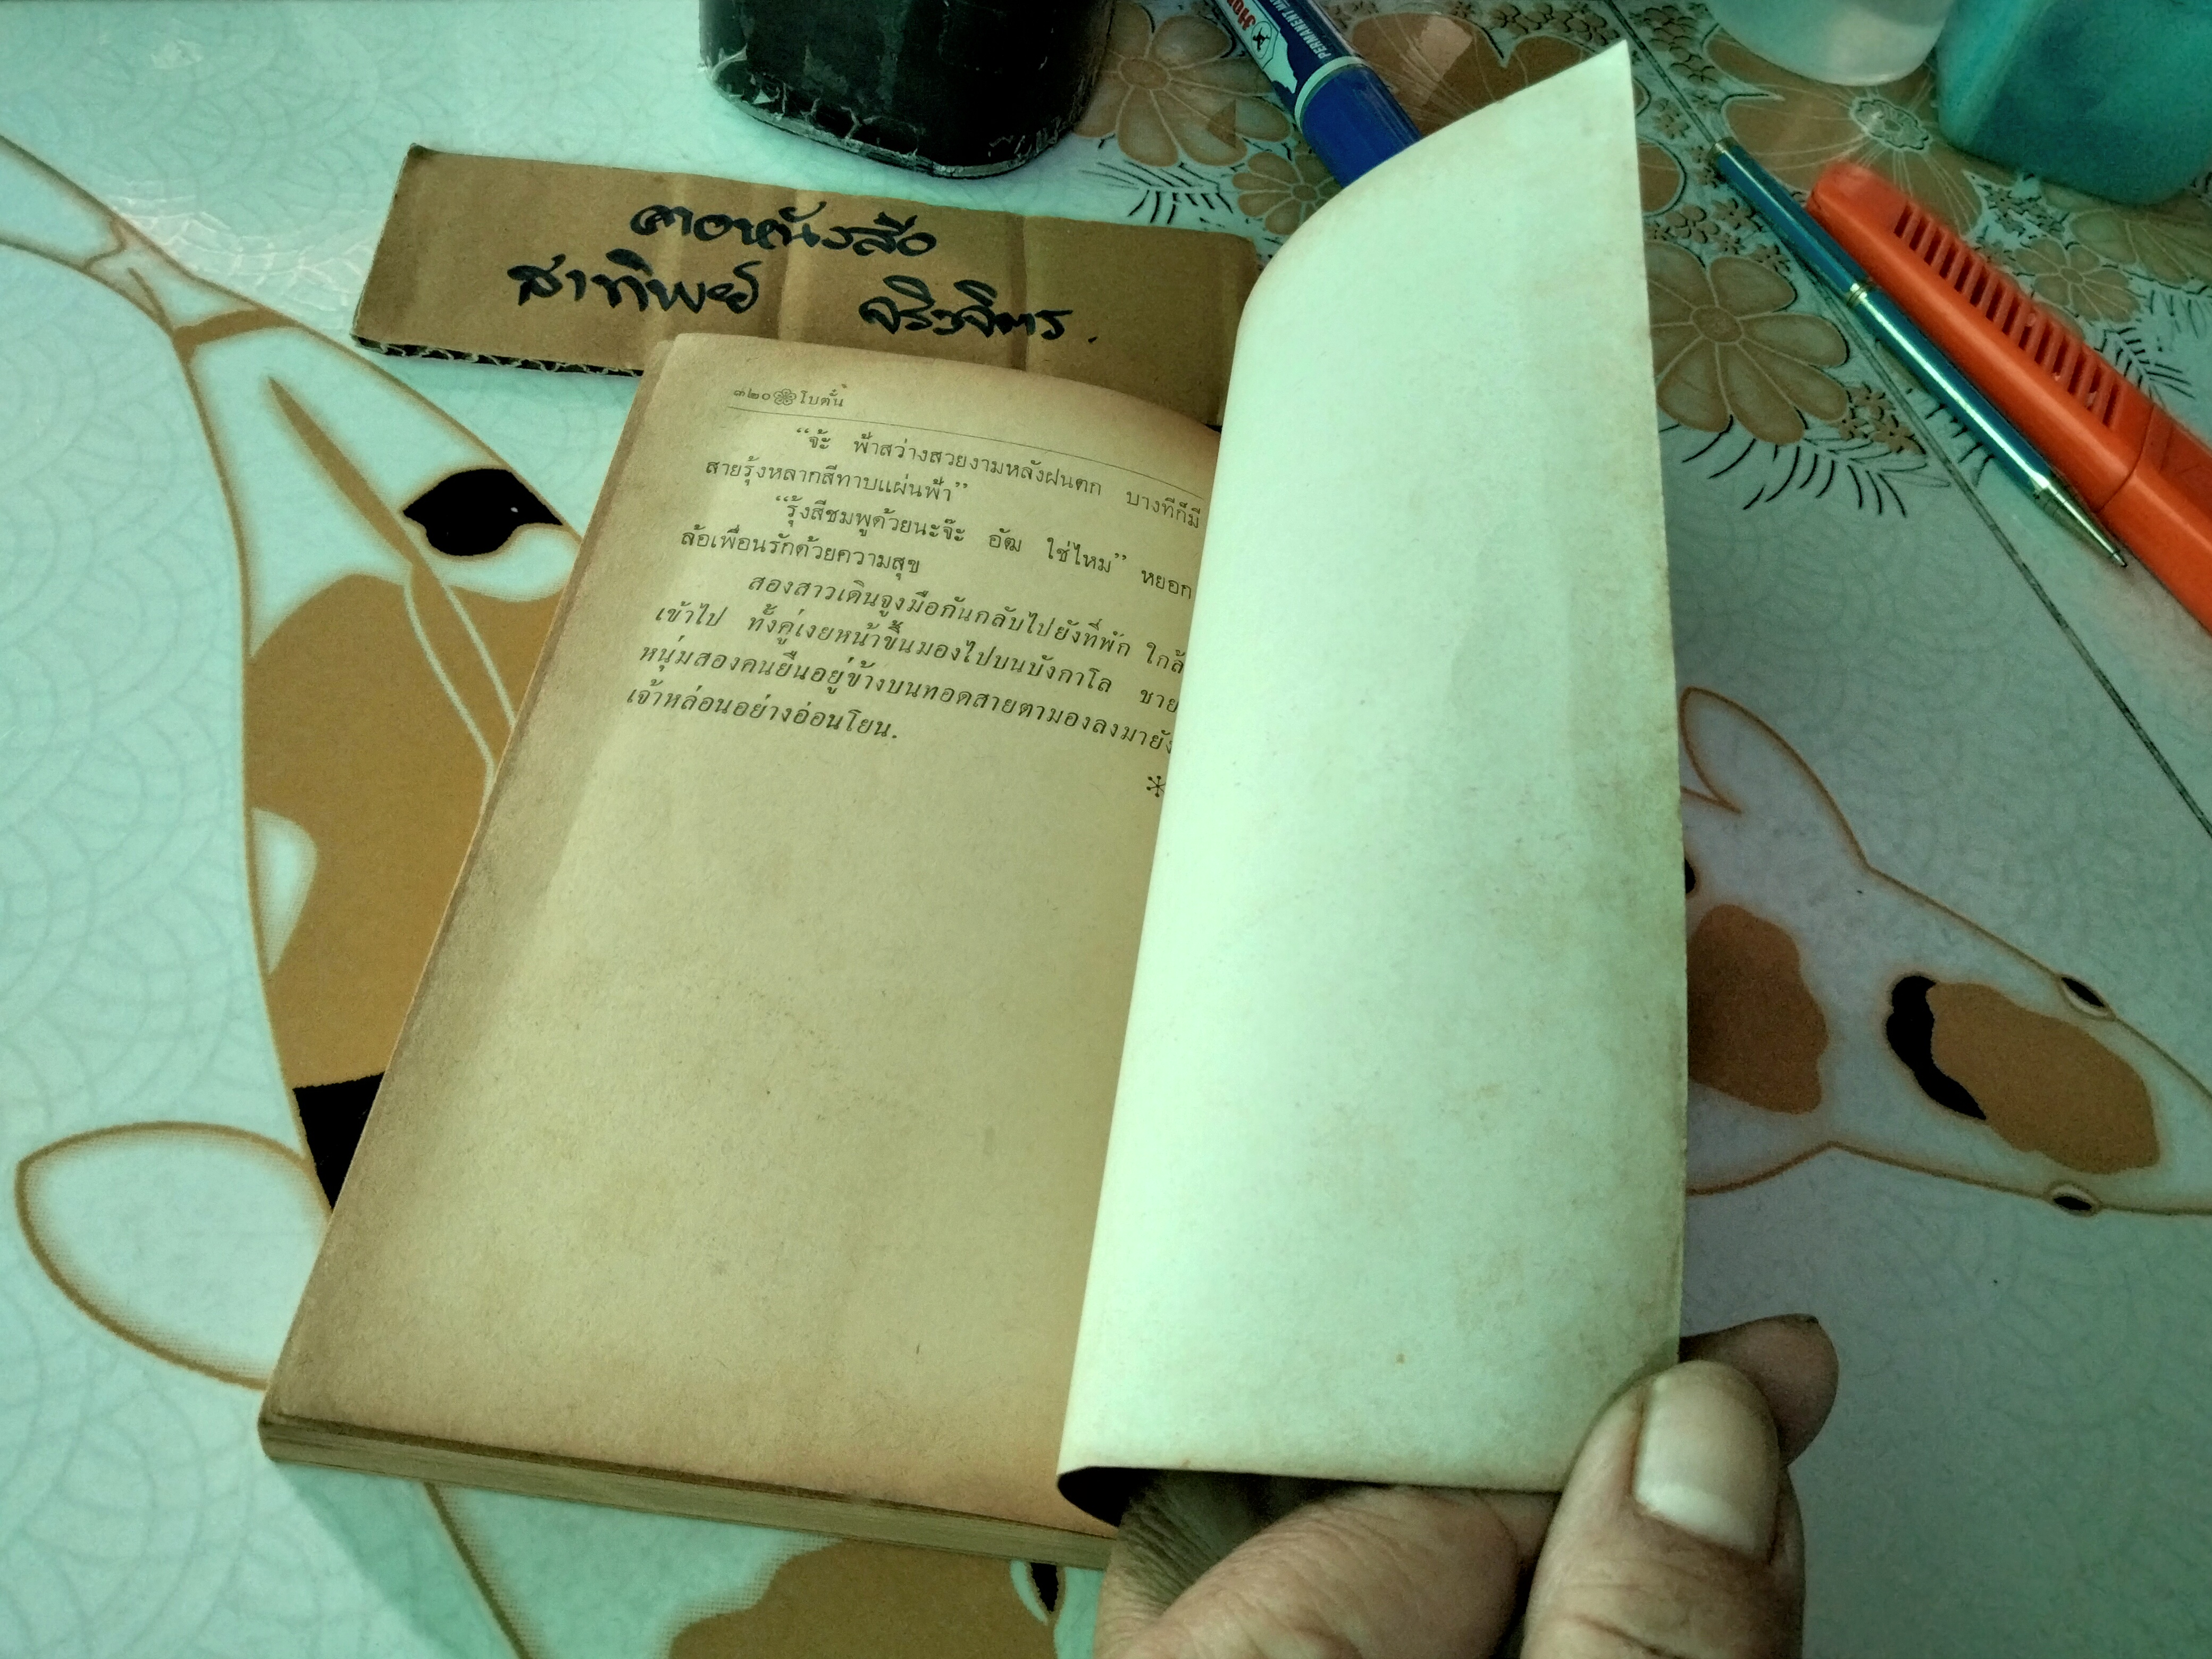 PERMANENT
คอหนังสือ
สาทิพย์ จริงจิตร.
๓๒๐ โบตั๋น
“จ้ะ ฟ้าสว่างสวยงามหลังฝนตก บางทีก็มี
สายรุ้งหลากสีทาบแผ่นฟ้า”
“รุ้งสีชมพูด้วยนะจ๊ะ อัฒ ใช่ไหม” หยอก
ล้อเพื่อนรักด้วยความสุข
สองสาวเดินจูงมือกันกลับไปยังที่พัก ใกล้
เข้าไป ทั้งคู่เงยหน้าขึ้นมองไปบนบังกาโล ชาย
หนุ่มสองคนยืนอยู่ข้างบนทอดสายตามองลงมายัง
เจ้าหล่อนอย่างอ่อนโยน.